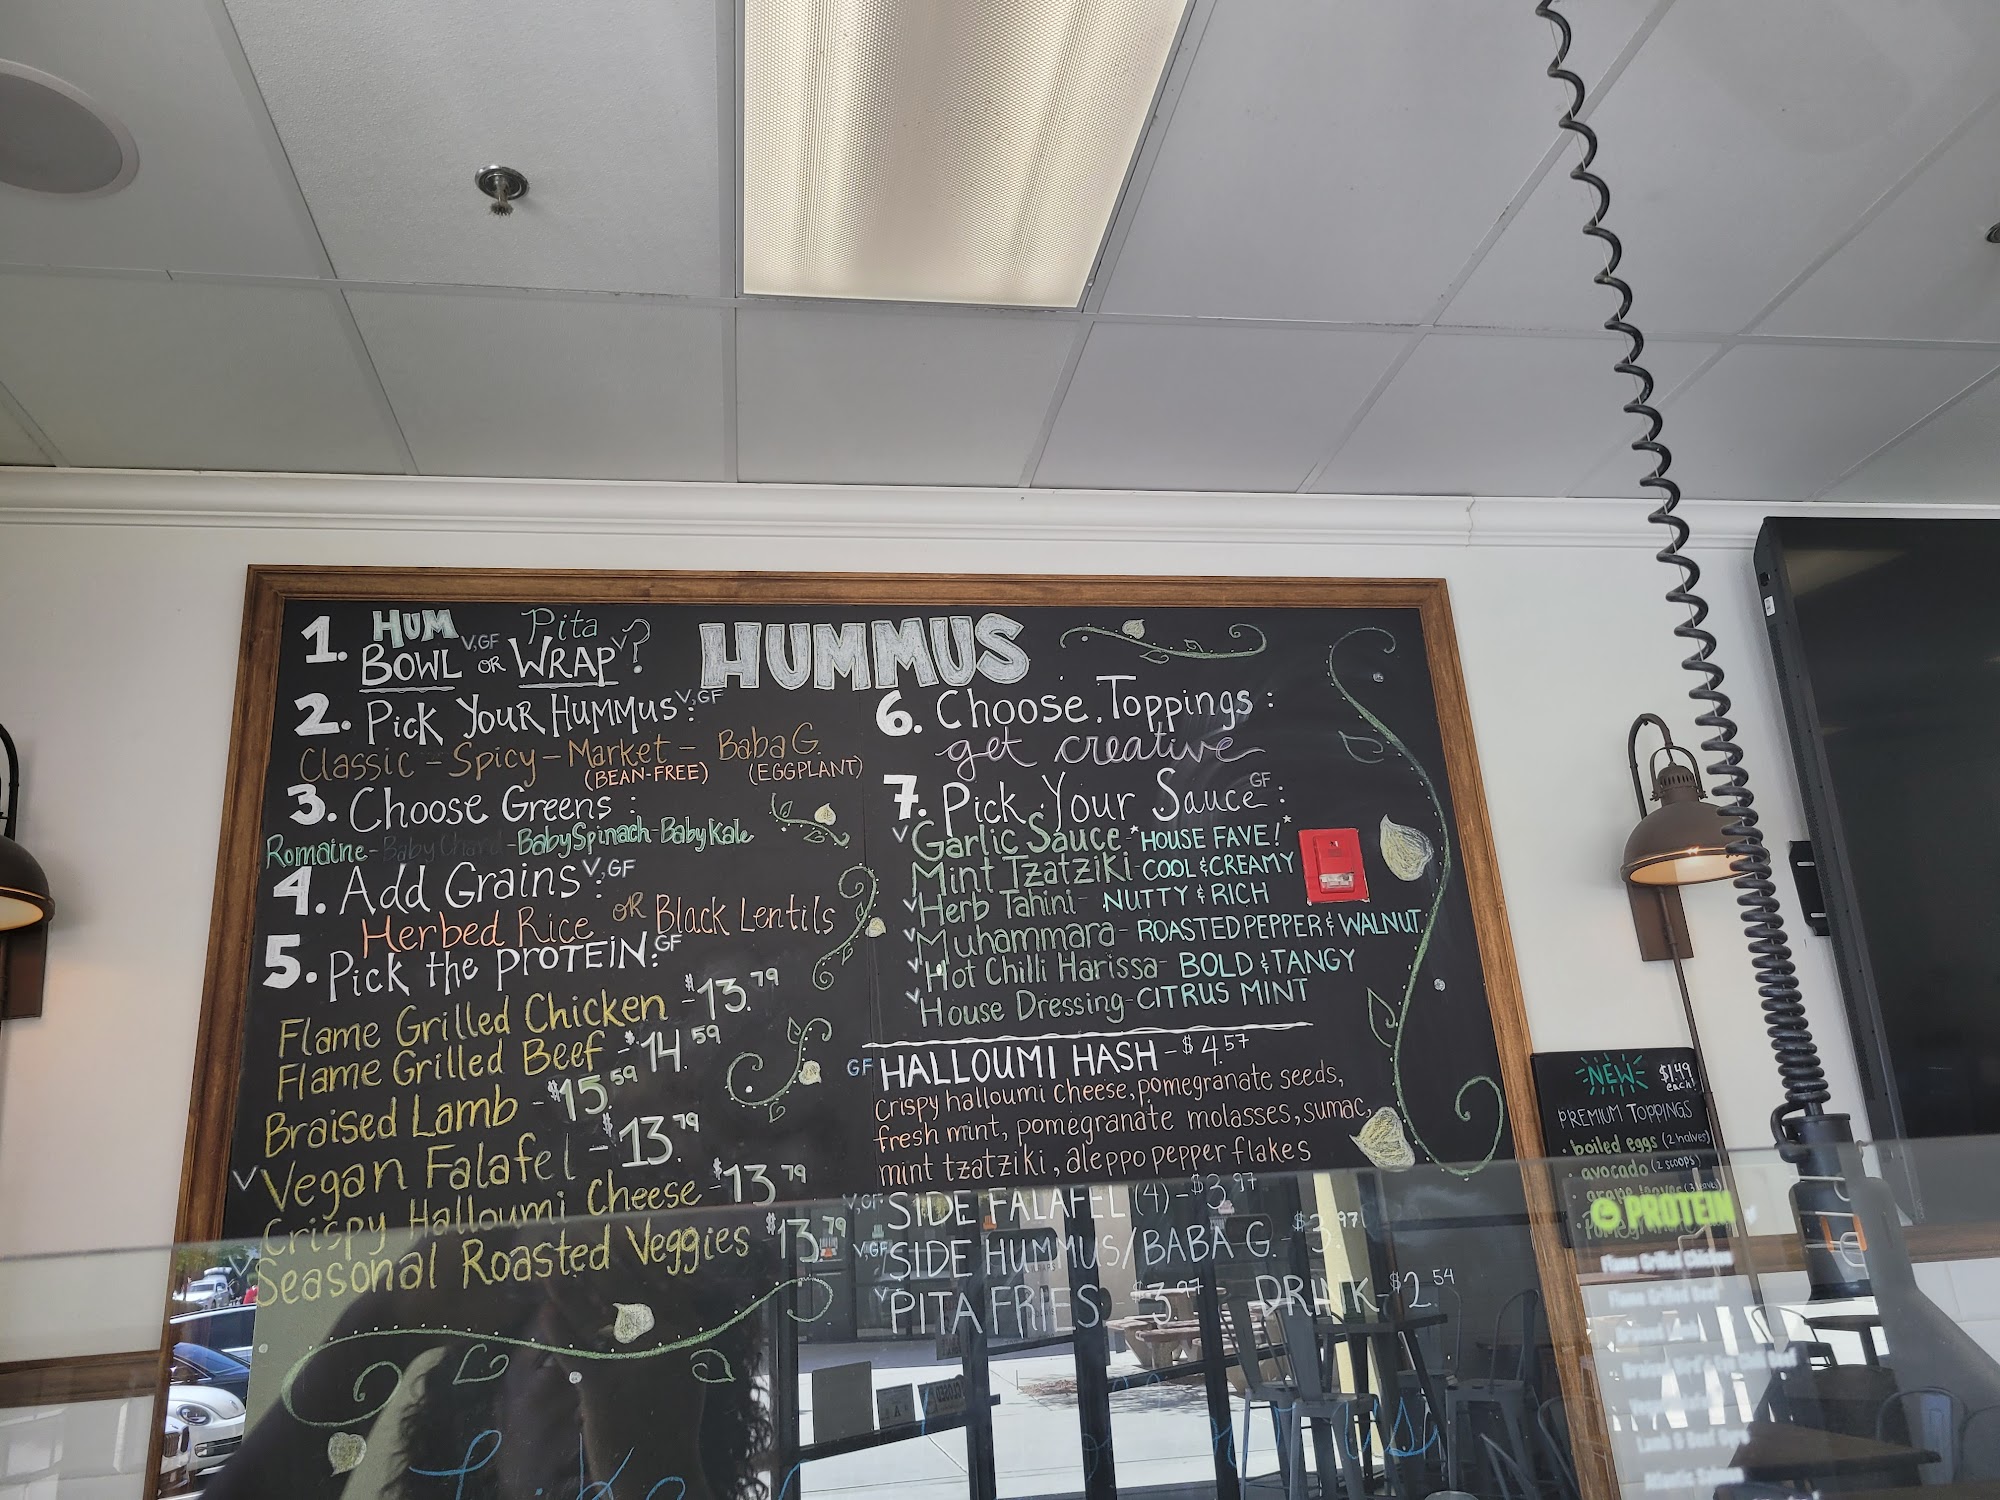 HUMMUS
1. HUM BOWL V,GF OR Pita WRAP V ?
2. Pick Your Hummus V,GF :
Classic - Spicy - Market - Baba G.
(BEAN-FREE) (EGGPLANT)
3. Choose Greens :
Romaine - Baby Chard - Baby Spinach - Baby Kale
4. Add Grains V,GF :
Herbed Rice OR Black Lentils
5. Pick the PROTEIN: GF
Flame Grilled Chicken - $13.79
Flame Grilled Beef - $14.59
Braised Lamb - $15.59
V Vegan Falafel - $13.79
Crispy Halloumi Cheese - $13.79
V Seasonal Roasted Veggies $13.79
6. Choose Toppings :
get creative
7. Pick Your Sauce GF :
V Garlic Sauce *HOUSE FAVE!*
Mint Tzatziki - COOL & CREAMY
V Herb Tahini - NUTTY & RICH
V Muhammara - ROASTED PEPPER & WALNUT
V Hot Chilli Harissa - BOLD & TANGY
V House Dressing - CITRUS MINT
GF HALLOUMI HASH - $4.57
Crispy halloumi cheese, pomegranate seeds,
fresh mint, pomegranate molasses, sumac,
mint tzatziki, aleppo pepper flakes
V,GF SIDE FALAFEL (4) - $3.97
V,GF SIDE HUMMUS/BABA G. - $3.97
V PITA FRIES - $3.97 DRINK - $2.54
NEW $1.49 each!
PREMIUM TOPPINGS
· boiled eggs (2 halves)
· avocado (2 scoops)
PROTEIN
Flame Grilled Chicken
Flame Grilled Beef